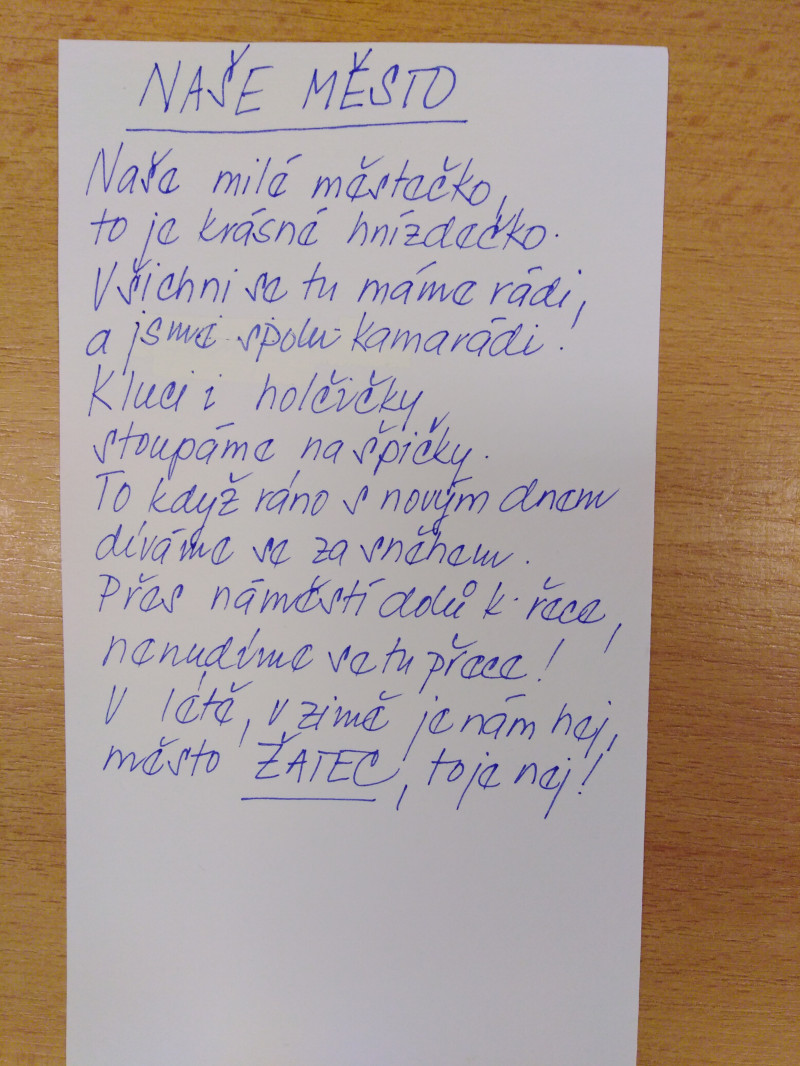 NAŠE MĚSTO
Naše milé městečko,
to je krásné hnízdečko.
Všichni se tu máme rádi,
a jsme spolu kamarádi!
Kluci i holčičky
stoupáme na špičky.
To když ráno s novým dnem
díváme se za sněhem.
Přes náměstí dolů k řece,
nenudíme se tu přece!
V létě, v zimě je nám hej,
město ŽATEC, to je nej!